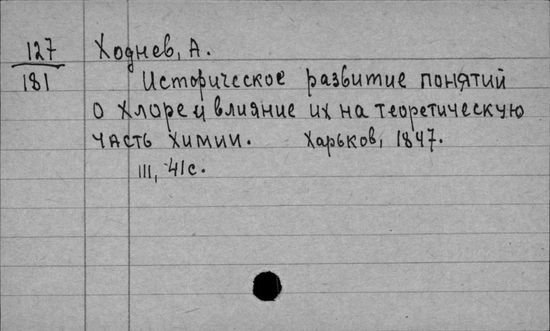 127
181
Ходнев, А.
Историческое развитие понятий
о хлоре и влияние их на теоретическую
часть химии. Харьков, 1847.
III, 41с.